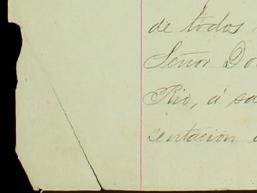 de todos
Señor Do
Rio, á sa
sentacion